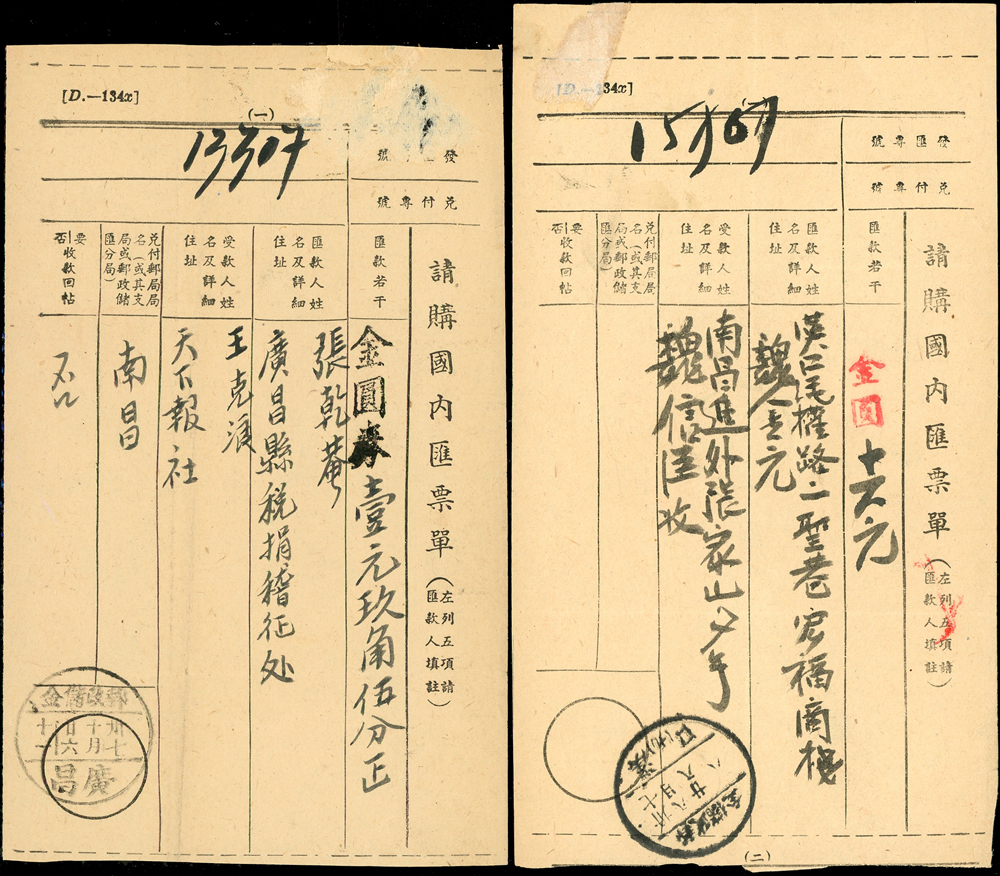 [D.—134x]
(一)
13307
發匯專號
兌付專號
請購國內匯票單(左列五項請匯款人填註)
匯款若干
金圓券壹元玖角伍分正
匯款人姓名及詳細住址
張乾菴
廣昌縣稅捐稽征处
受款人姓名及詳細住址
王克浪
天下報社
兌付郵局局名(或其支局或郵政儲匯分局)
南昌
要否收款回帖
否
郵政儲金
卅七
十月
廿六
十二
廣昌
34x]
15167
發匯專號
兌付專號
請購國內匯票單(左列五項請匯款人填註)
匯款若干
金圓
十六元
匯款人姓名及詳細住址
漢口民權路二聖巷宏福商棧
魏人
元
受款人姓名及詳細住址
南昌進外張家山
魏信臣收
兌付郵局局名(或其支局或郵政儲匯分局)
要否收款回帖
漢口
卅七
八月
廿八
(二)